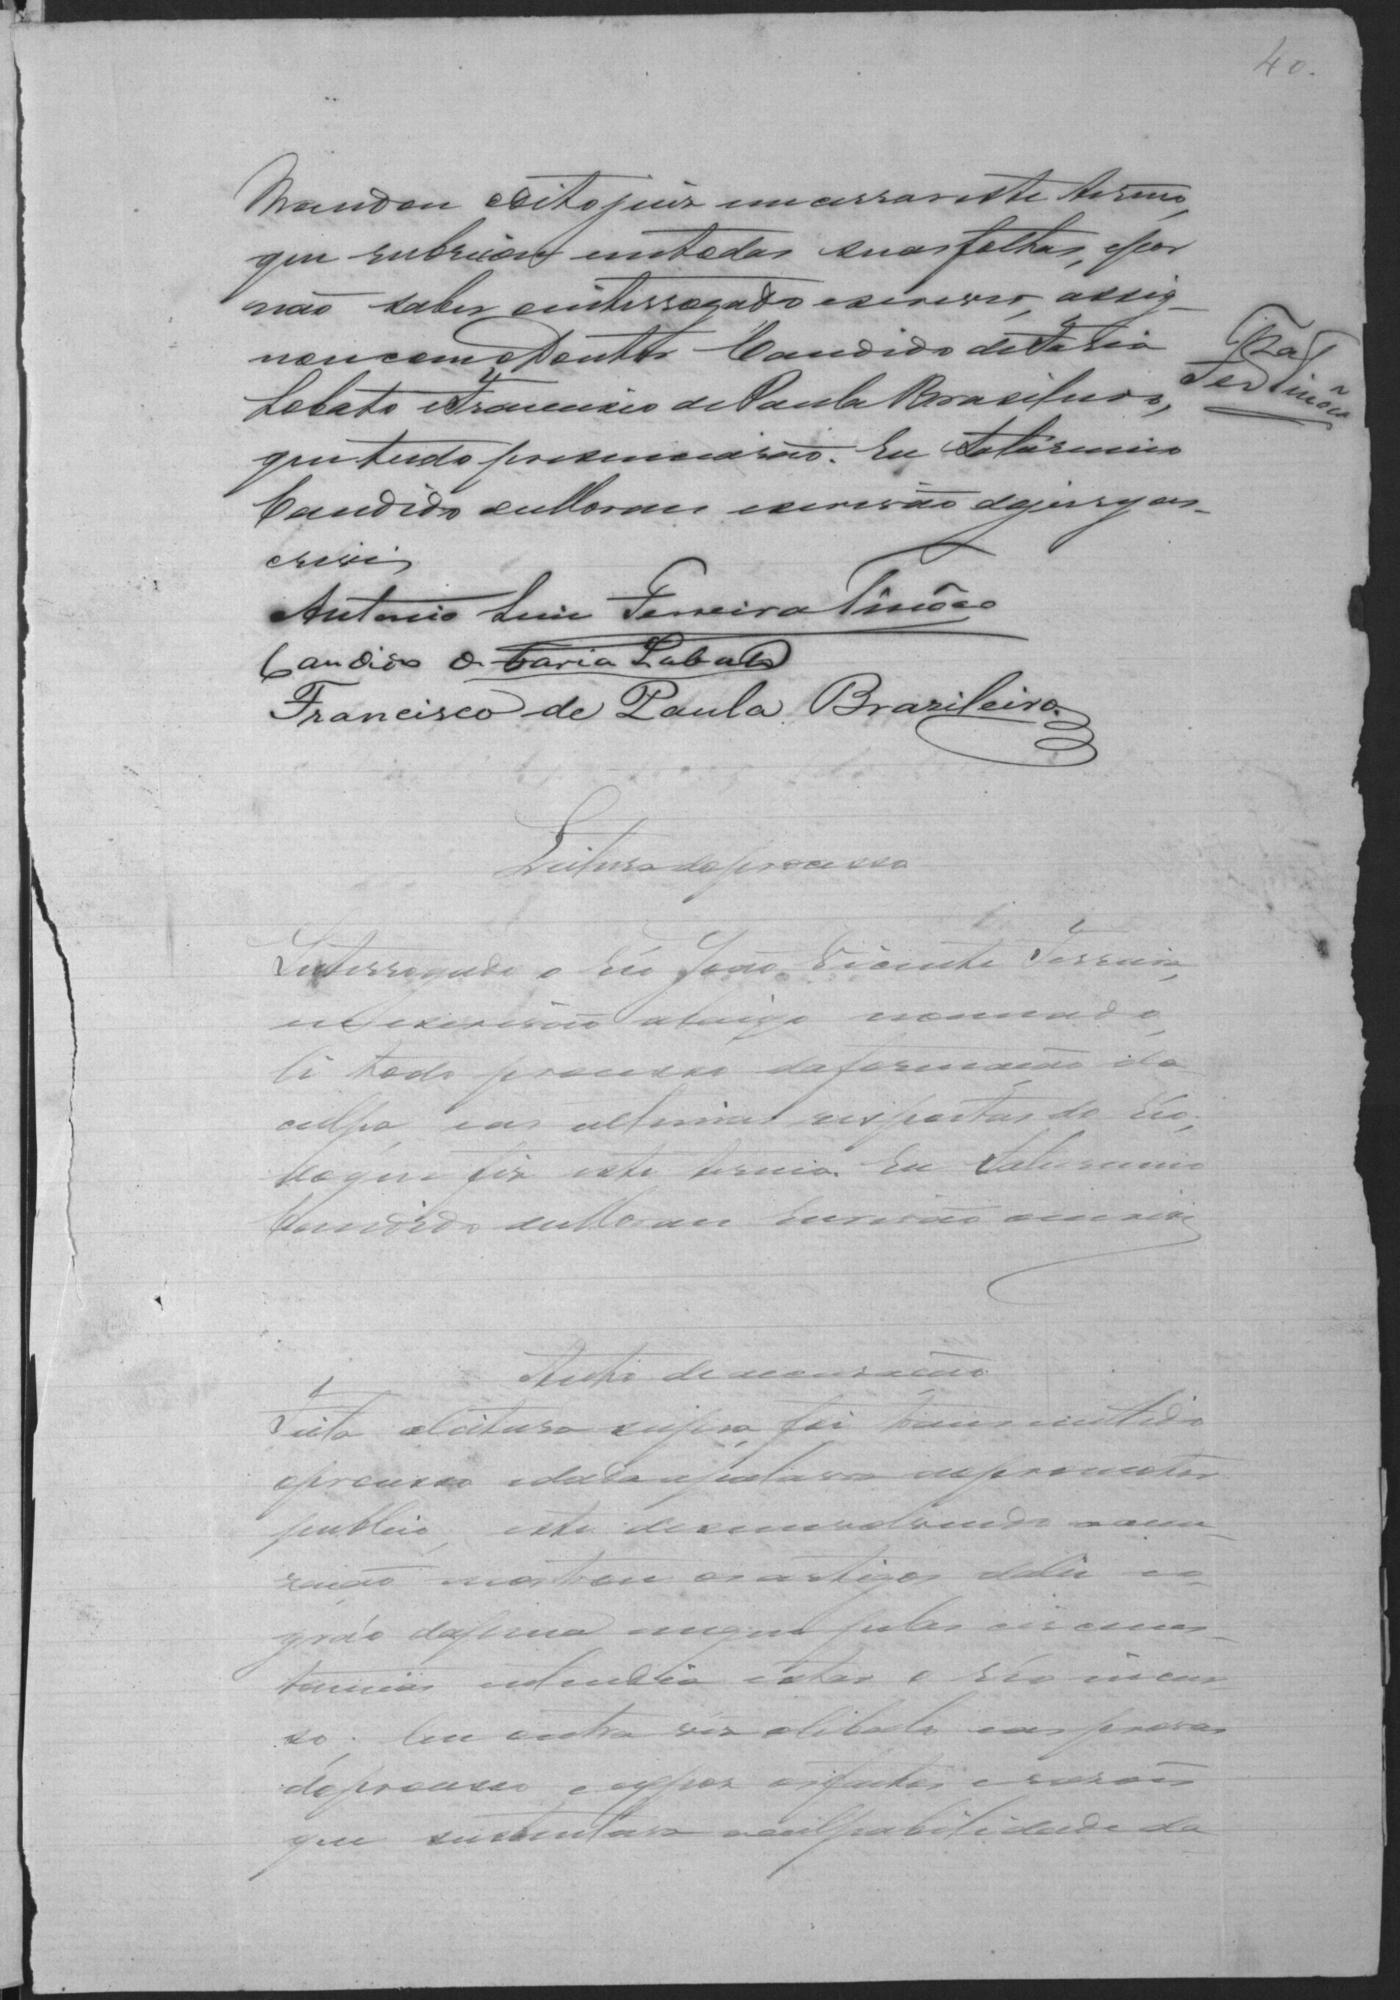 40.
Mandou o dito juiz encerrar este termo,
que rubricou em todas suas folhas, e por
não saber o interrogado escrever, assig-
nou com o Doutor Candido de Faria
Lobato e Francisco de Paula Brasileiro,
que tudo presenciarão. Eu Saturnino
Candido escrivão do jury es-
crevi
Antonio Luiz Ferreira Tinôco
Candido de Faria Lobato
Francisco de Paula Brazileiro.
Ferr Tinôco
Leitura do processo
Interrogado o réo João Vicente Ferreira,
eu escrivão abaixo nomeado,
li todo processo da formação da
culpa, e as ultimas respostas do réo;
do que fiz este termo. Eu Saturnino
Candido escrivão o escrevi
Auto de accusação
Feita a leitura supra, foi transmittido
o processo e dada a palavra ao promotor
publico, este desenvolvendo a accu-
zação mostrou os artigos da lei e o
gráo da pena em que pelas circums-
tancias entendia estar o réo incur-
so. Leu outra vez o libello e as provas
do processo e expoz os factos e rasões
que sustentão a culpabilidade do